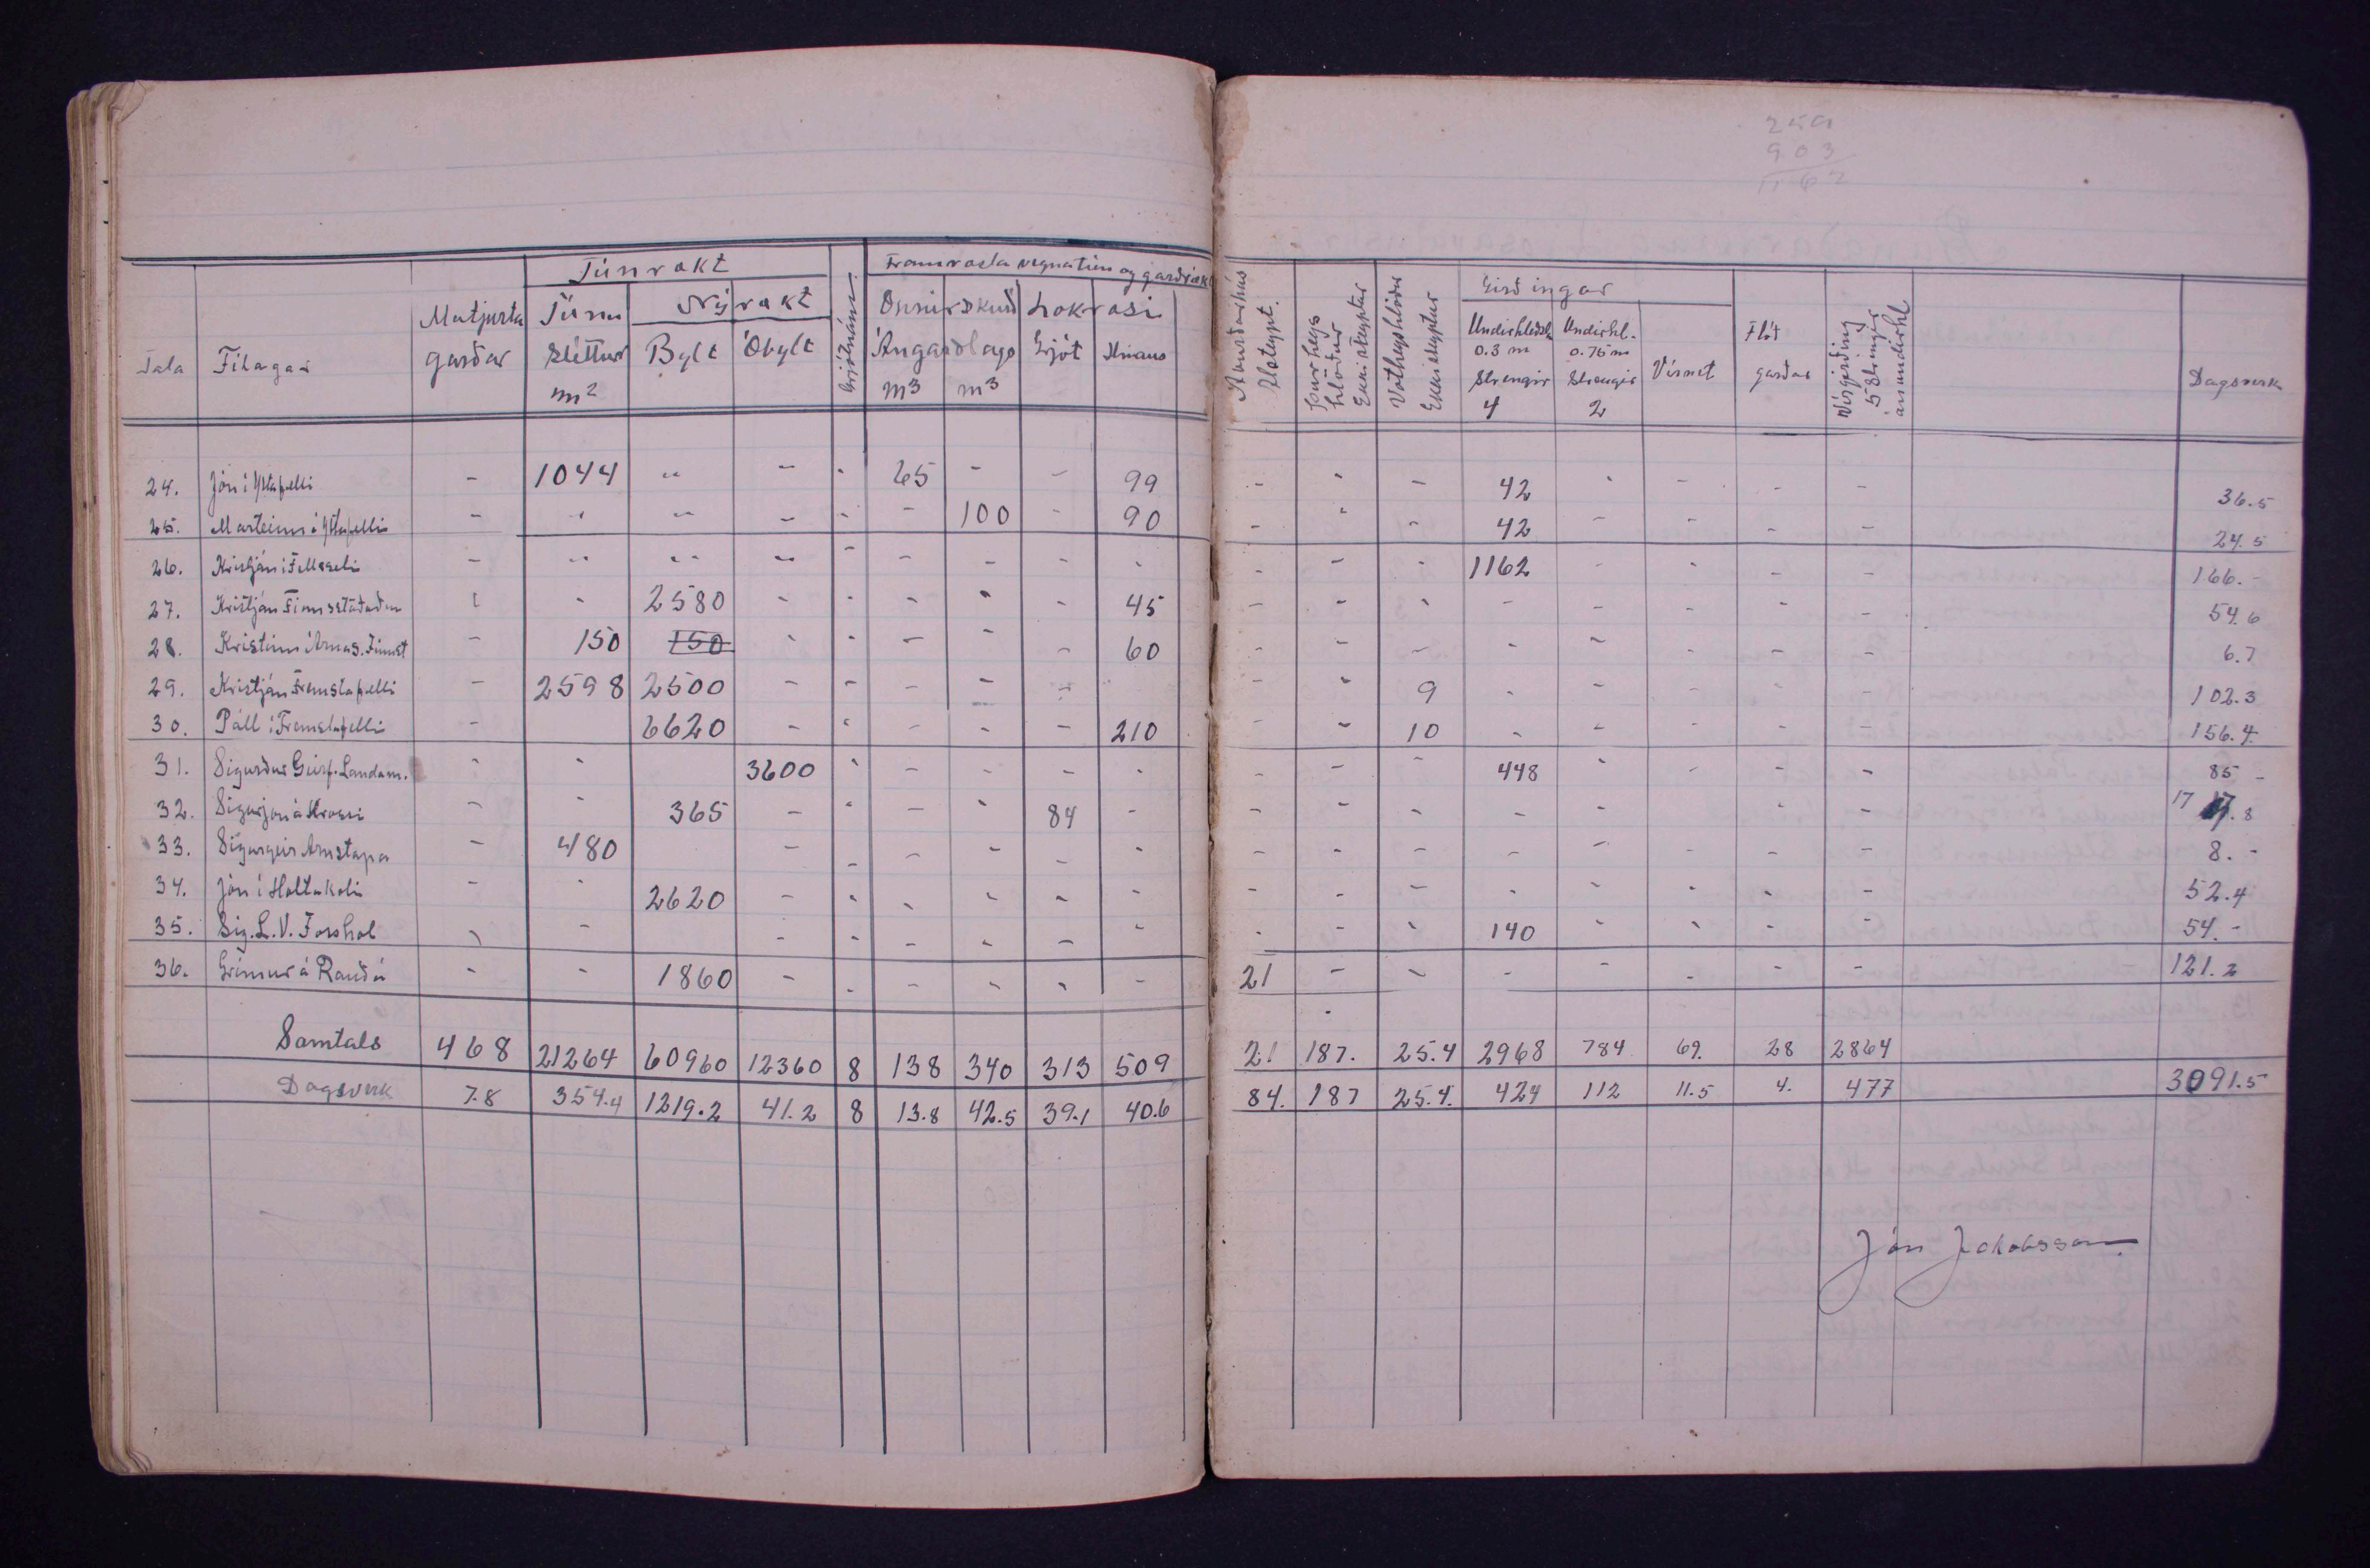 Túnrækt
Framræsla vegna tún og garðrækt
Matjurta Túna Nýrækt Grjótnám Opnir skurð Lokræsi
Tala Félagar garðar sléttur Bylt Óbylt Án garðlags Grjót Hnaus
m² m³ m³
24. Jón í Ystafelli - 1044 - - - 65 - - 99
25. Marteinn í Ystafelli - - - - - - 100 - 90
26. Kristján í Fellsseli - - - - - - - - -
27. Kristján Finnsstöðum - - 2580 - - - - - 45
28. Kristinn Arnas. Finnst - 150 150 - - - - - 60
29. Kristján Fremstafelli - 2598 2500 - - - - -
30. Páll í Fremstafelli - 6620 - - - - - 210
31. Sigurður Geirf. Landam. - - 3600 - - - - -
32. Sigurjón á Krossi - - 365 - - - - 84 -
33. Sigurgeir Arnstapa - 480 - - - - - -
34. Jón í Holtakoti - - 2620 - - - - - -
35. Sig. L. V. Fosshól - - - - - - - -
36. Grímur á Rauðá - - 1860 - - - - - -
Samtals 468 21264 60960 12360 8 138 340 313 509
Dagsverk 7.8 354.4 1219.2 41.2 8 13.8 42.5 39.1 40.6
259
903
1162
Girðingar
Áburðarhús Þurheys hlöður Votheyshlöður Undirhleðsla Undirhl. Vírnet Flóð Vírgirðing Dagsverk
Alsteypt. Ekki steyptar Ekki steyptar 0.3 m 0.75 m garðar 5 Strengir
Strengir Strengir án undirhl
4 2
- - - 42 - - - - 36.5
- - - 42 - - - - 24.5
- - - 1162 - - - - 166.-
- - - - - - - - 54.6
- - - - - - - - 6.7
- - 9 - - - - - 102.3
- - 10 - - - - - 156.4
- - - 448 - - - - 85 -
- - - - - - - 17 17.8
- - - - - - - - 8.-
- - - - - - - - 52.4
- - - 140 - - - - 54.-
21 - - - - - - - 121.2
21 187. 25.4 2968 784 69. 28 2864
84. 187 25.4. 424 112 11.5 4. 477 3091.5
Jón Jakobsson